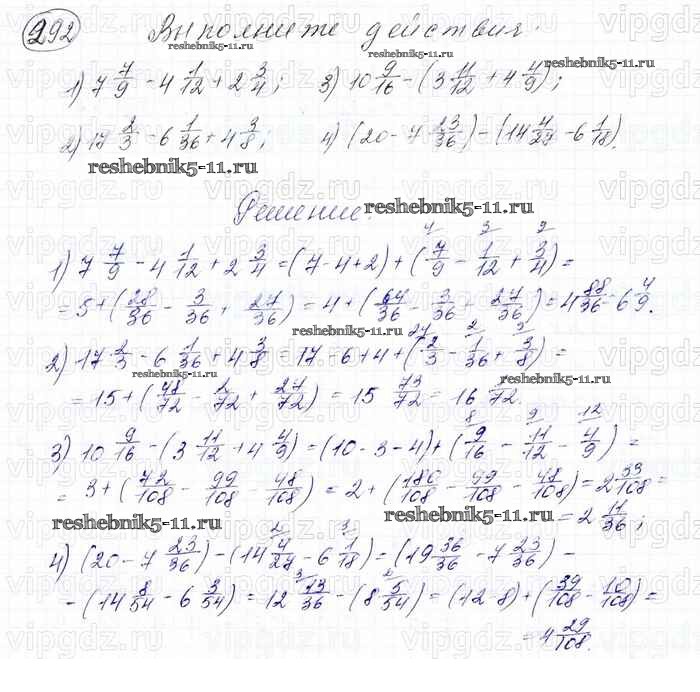 292 Выполните действия.
reshebnik5-11.ru reshebnik5-11.ru
1) 7 7/9 - 4 1/12 + 2 3/4; 3) 10 9/16 - (3 11/12 + 4 4/9);
2) 17 2/3 - 6 1/36 + 4 3/8; 4) (20 - 7 23/36) - (14 4/27 - 6 1/18).
reshebnik5-11.ru
Решение: reshebnik5-11.ru
4 3 2
1) 7 7/9 - 4 1/12 + 2 3/4 = (7-4+2) + (7/9 - 1/12 + 3/4) =
= 5 + (28/36 - 3/36 + 27/36) = 4 + (64/36 - 3/36 + 27/36) = 4 88/36 = 6 4/9.
reshebnik5-11.ru 24 2 3
2) 17 2/3 - 6 1/36 + 4 3/8 = 17 - 6 + 4 + (2/3 - 1/36 + 3/8) =
reshebnik5-11.ru reshebnik5-11.ru
= 15 + (48/72 - 2/72 + 27/72) = 15 73/72 = 16 1/72.
8 9 12
3) 10 9/16 - (3 11/12 + 4 4/9) = (10-3-4) + (9/16 - 11/12 - 4/9) =
= 3 + (72/108 - 99/108 - 48/108) = 2 + (180/108 - 99/108 - 48/108) = 2 33/108 =
reshebnik5-11.ru reshebnik5-11.ru = 2 11/36;
2 3
4) (20 - 7 23/36) - (14 4/27 - 6 1/18) = (19 36/36 - 7 23/36) -
3 2
- (14 8/54 - 6 3/54) = 12 13/36 - (8 5/54) = (12-8) + (39/108 - 10/108) =
= 4 29/108.